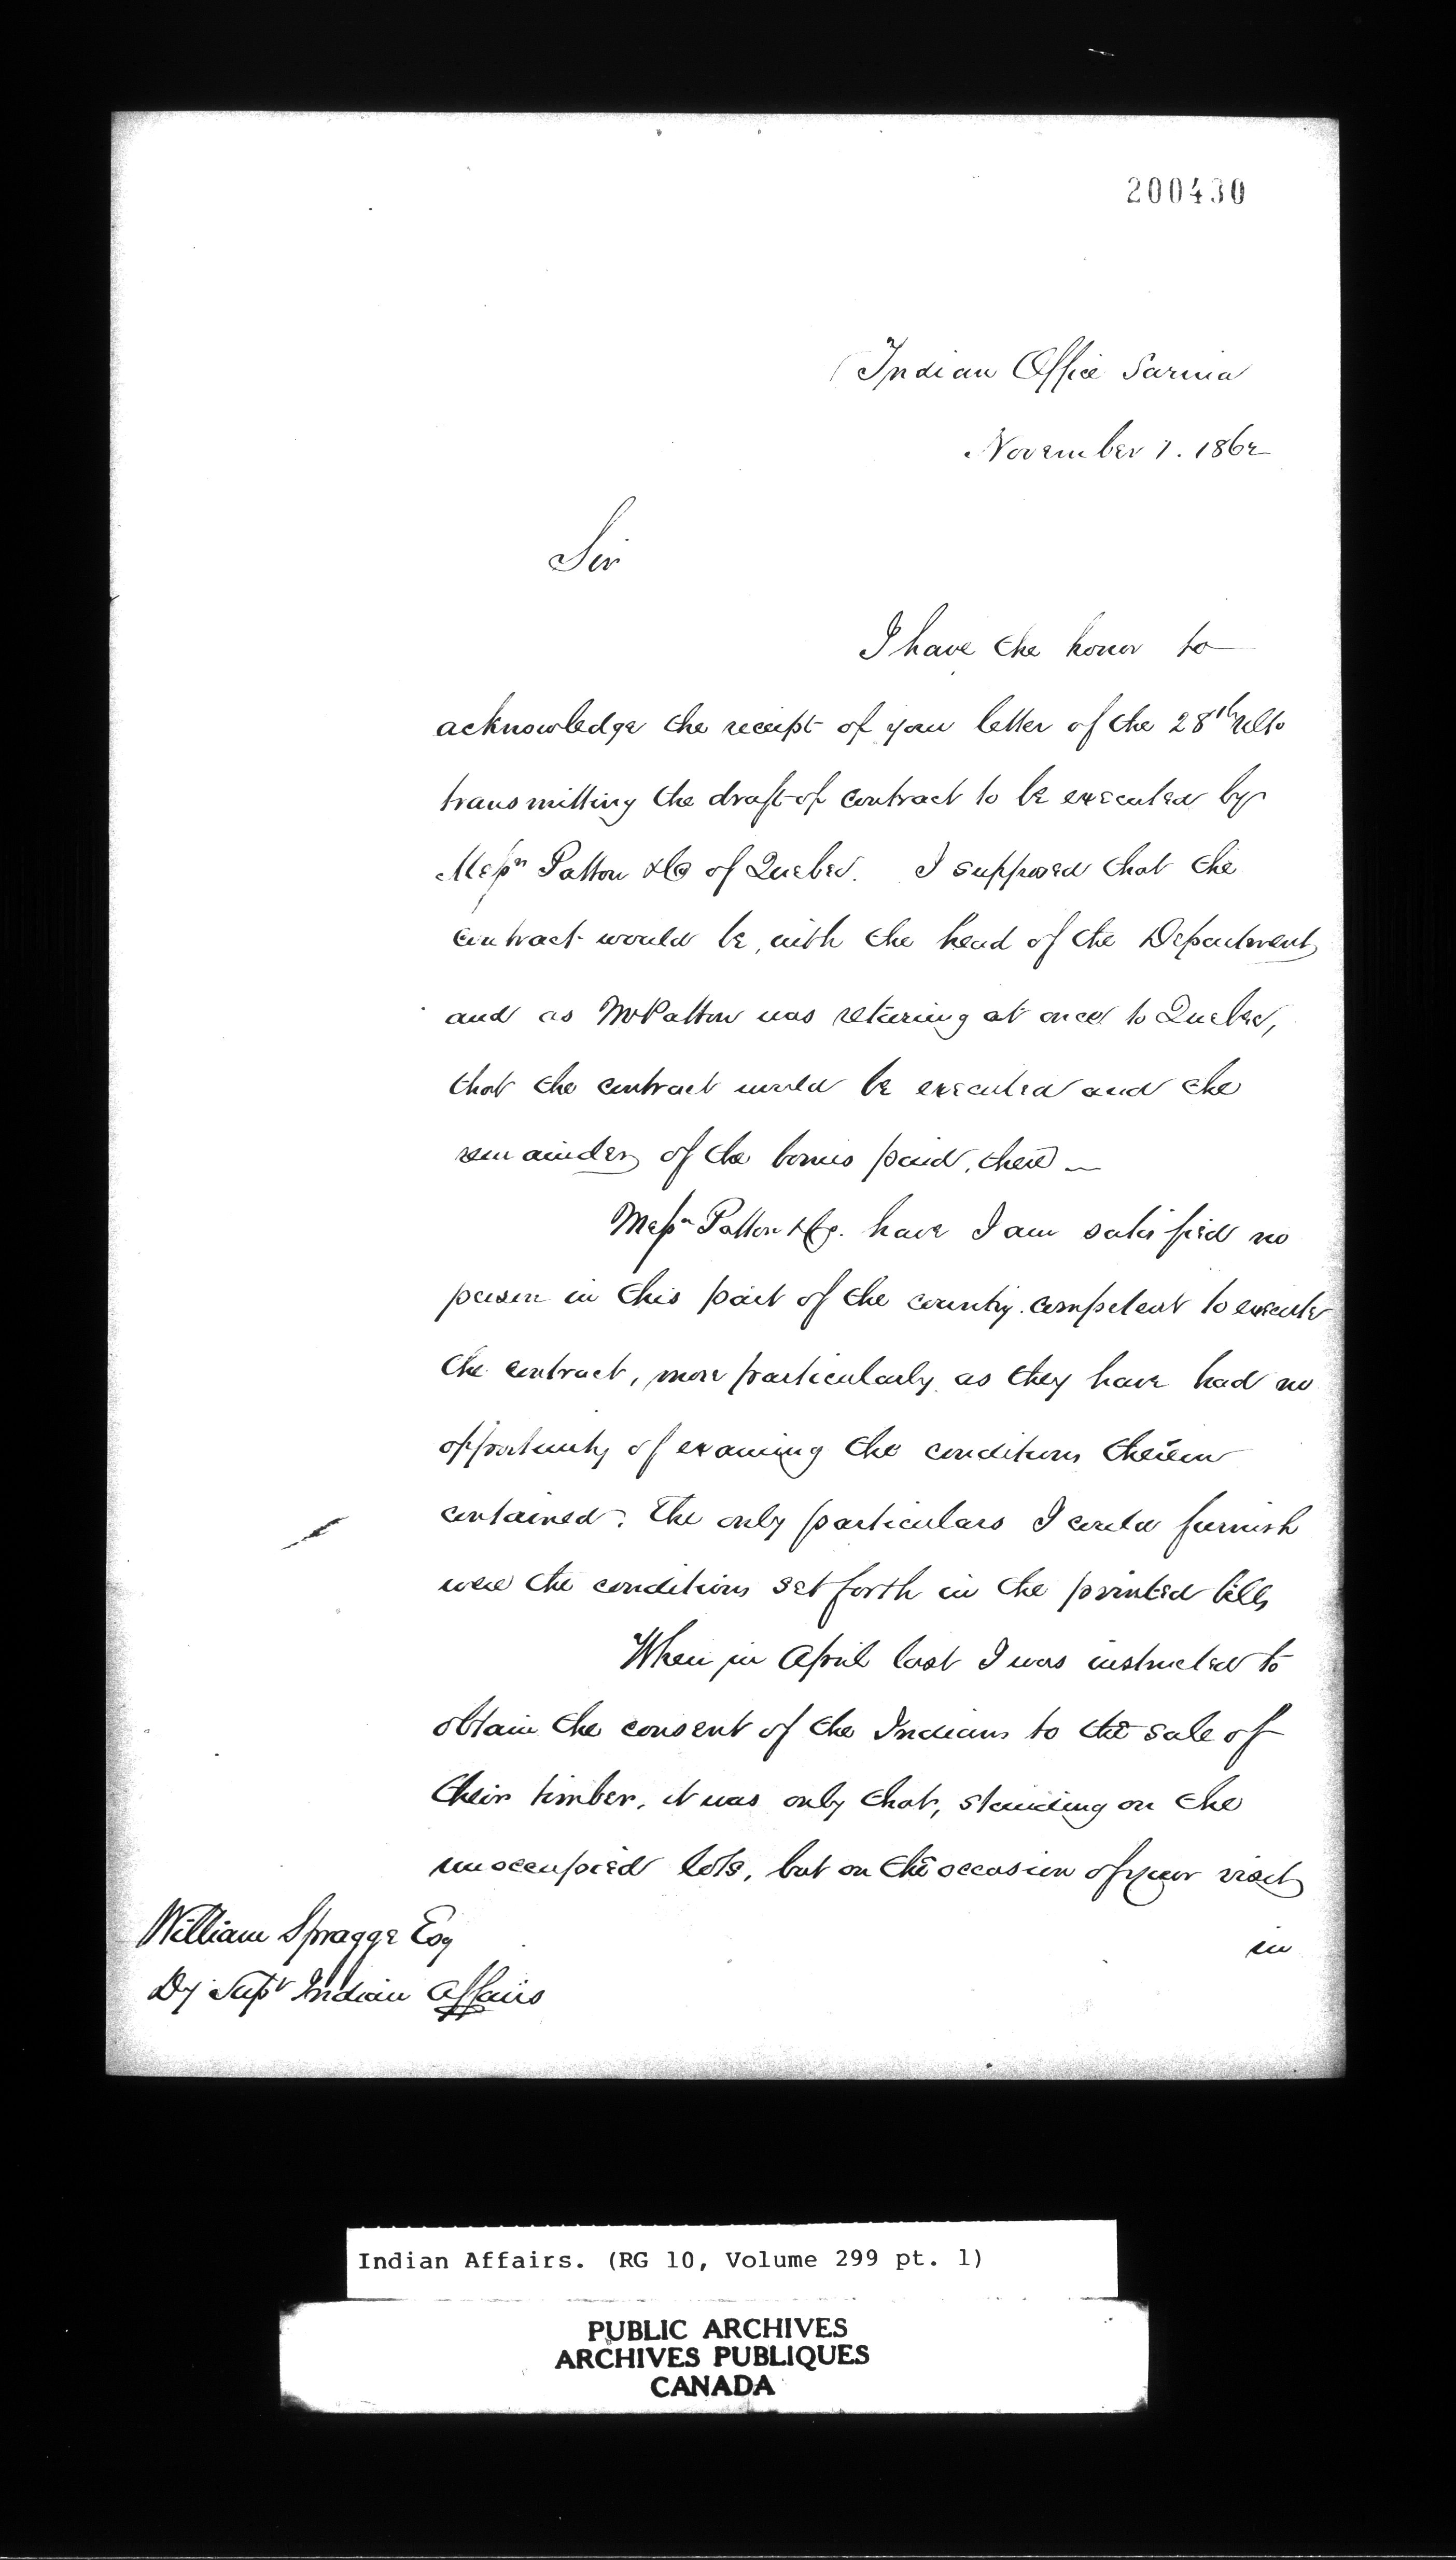 200430
Indian Office Sarnia
November 7. 1862
Sir
I have the honor to
acknowledge the receipt of your letter of the 28th Ulto
transmitting the draft of contract to be executed by
Messrs Patton & Co of Quebec. I supposed that the
contract would be, with the head of the Department
and as Mr Patton was returning at once to Quebec,
that the contract would be executed and the
remainder of the bonus paid, there
Messrs Patton & Co. have I am satisfied no
person in this part of the country competent to execute
the contract, more particularly as they have had no
opportunity of examing the conditions therein
contained. The only particulars I could furnish
were the conditions set forth in the printed bills
When in April last I was instructed to
obtain the consent of the Indians to the sale of
their timber, it was only that, standing on the
unoccupied lots, but on the occasion of your visit
in
William Spragge Esq
Dy Supt Indian Affairs
Indian Affairs. (RG 10, Volume 299 pt. 1)
PUBLIC ARCHIVES
ARCHIVES PUBLIQUES
CANADA